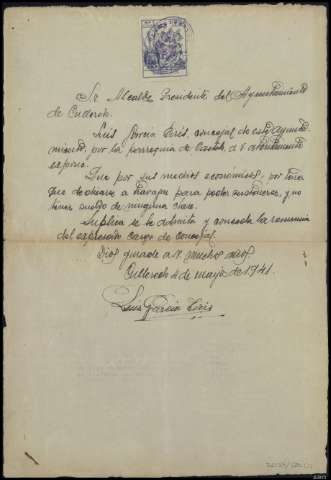 Sr Alcalde Presidente del Ayuntamiento
de Cudillero.
Luis García Peris, concejal de este Ayunta-
miento, por la parroquia de a V atentamente
expone.
Que por sus medios económicos, por tener
que dedicarse a trabajar para poder sostenerse, y no
tener sueldo de ninguna clase.
Suplica se le admita y conceda la renuncia
del expresado cargo de Concejal.
Dios guarde a V muchos años
4 de mayo de 1941.
Luis García